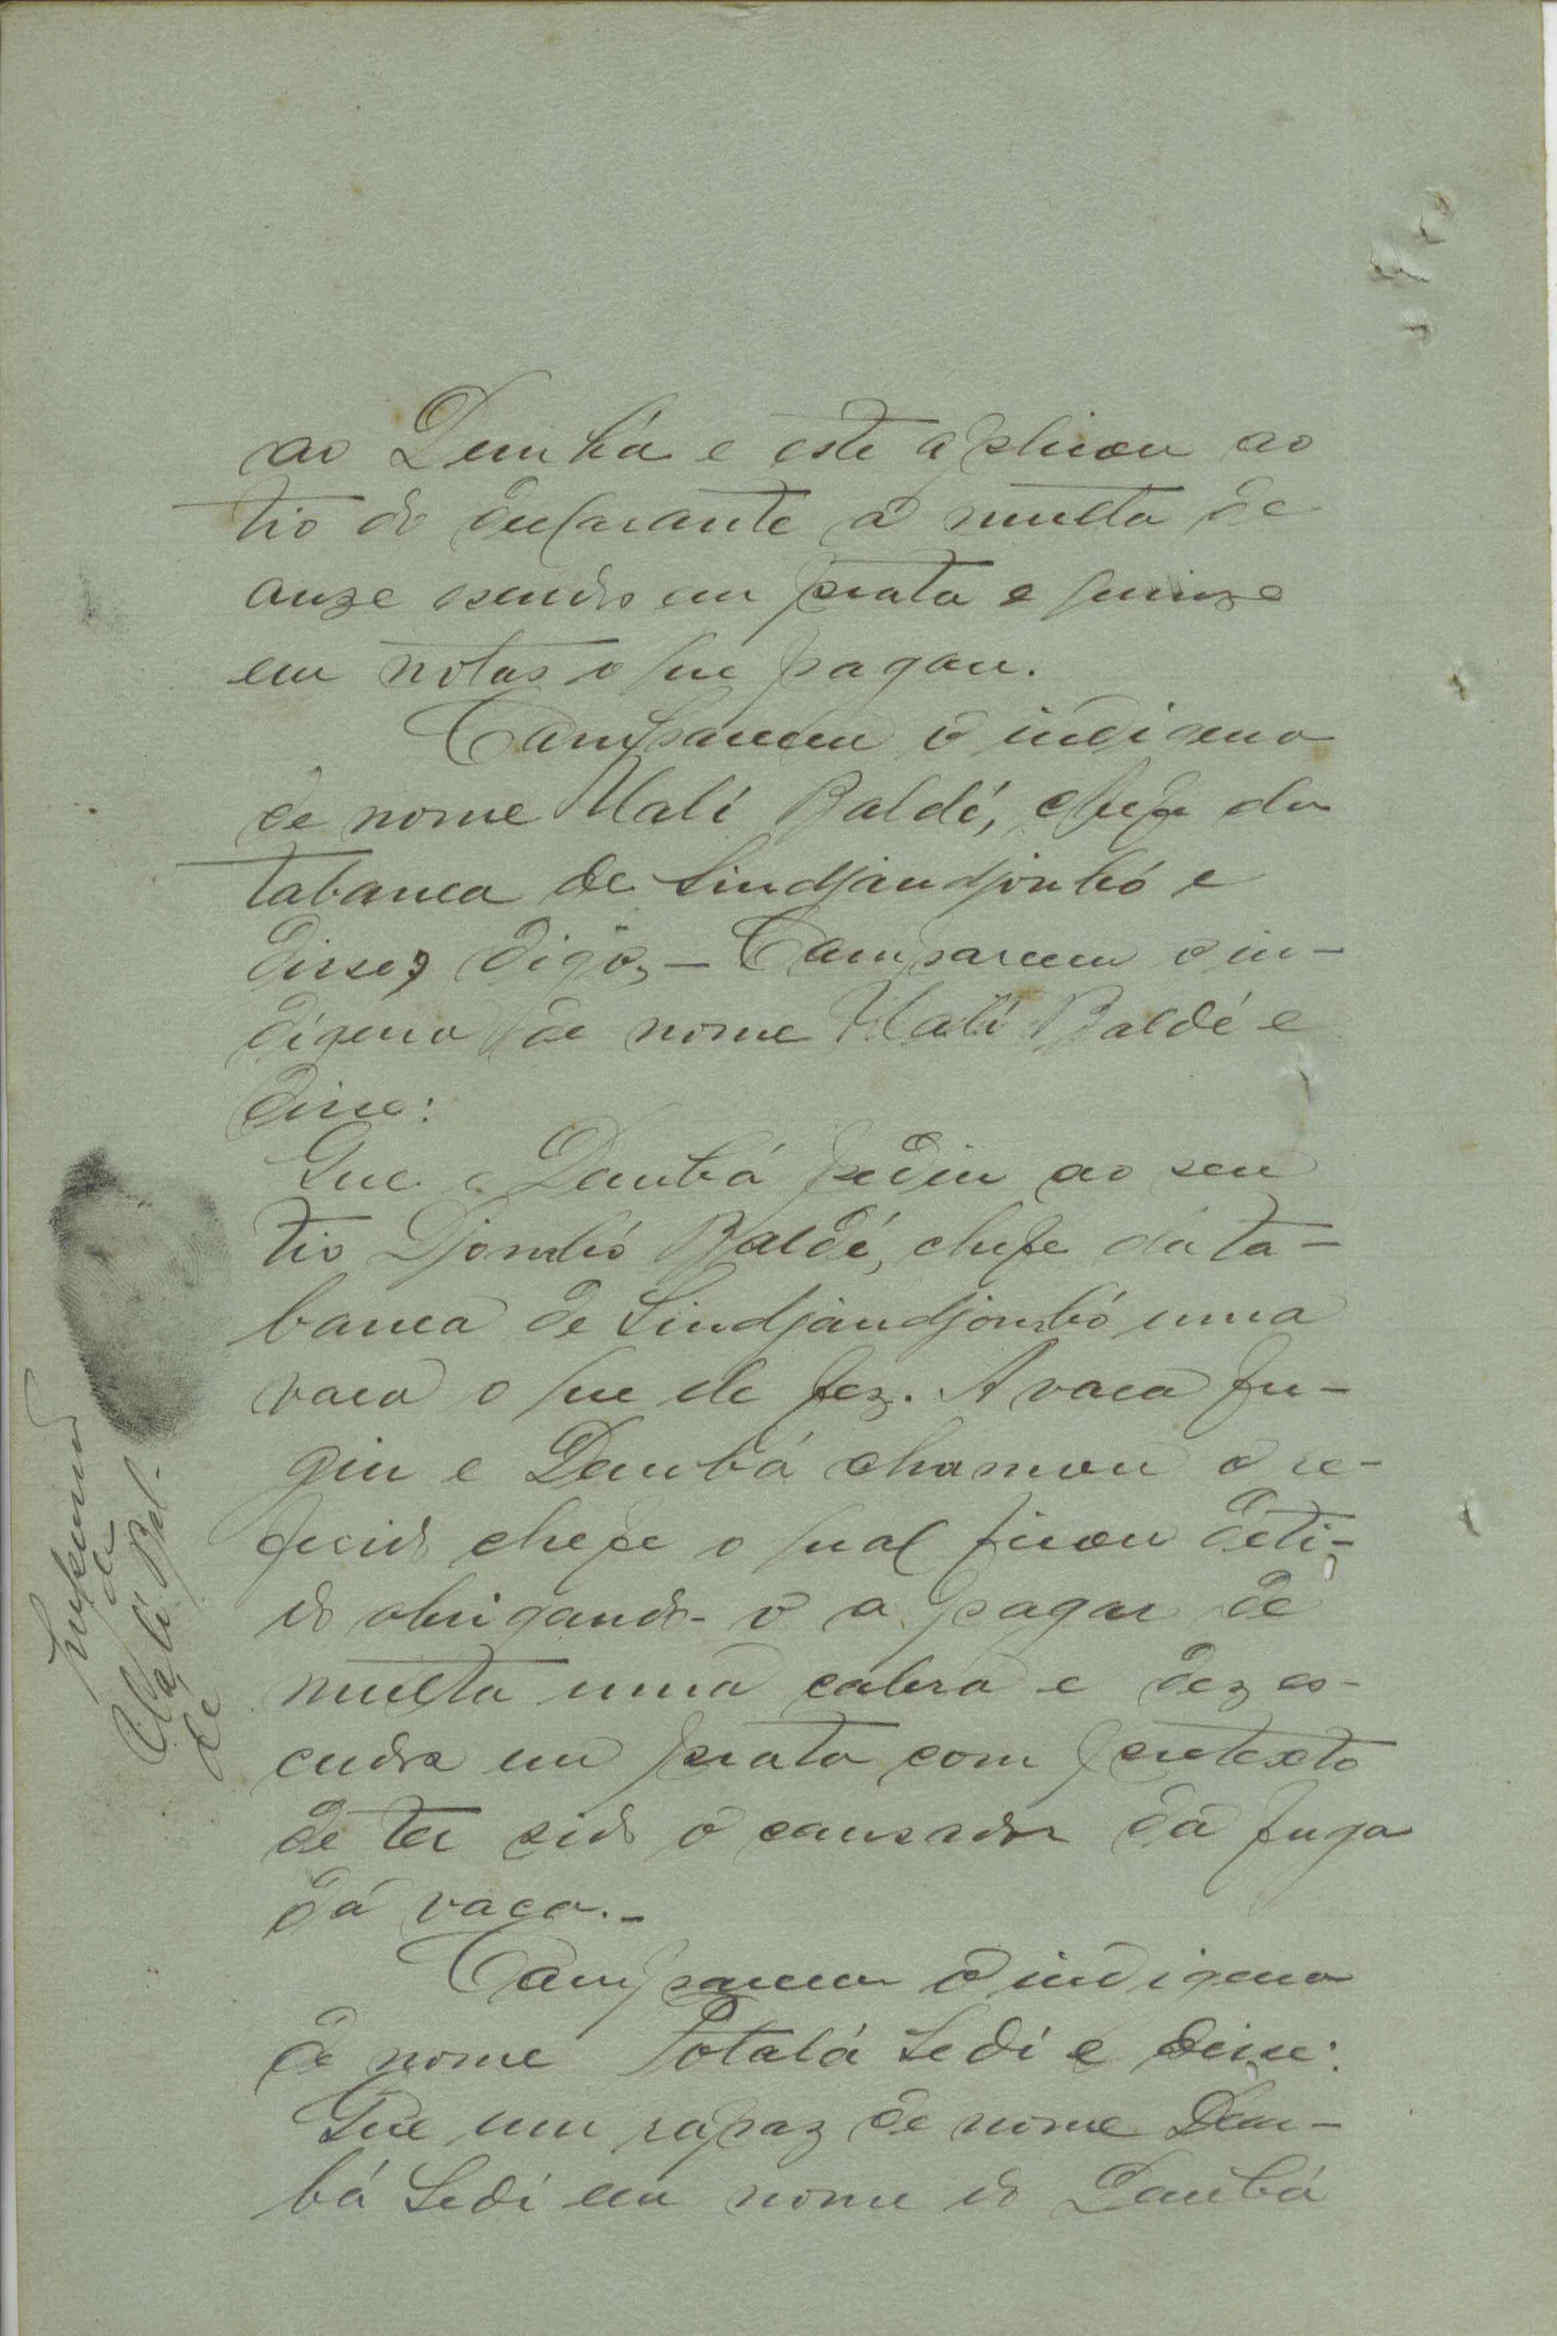 ao Dembá e este aplicou ao
tio do declarante a multa de
onze escudos em prata e quinze
em notas o que pagou.
Compareceu o indigena
de nome Mali Baldé, chefe da
tabanca de Sindjandjonbó e
disse, digo, – Compareceu o in-
digena de nome Mali Baldé e
disse:
Que o Danbá pediu ao seu
tio Djombó Baldé, chefe da ta-
banca de Sindjandjombó uma
vaca o que ele fez. A vaca fu-
giu e Danbá chamou o re-
ferido chefe o qual ficou deti-
do obrigando-o a pagar de
multa uma cabra e dez es-
cudos em prata com pretexto
de ter sido o causador da fuga
da vaca.-
Compareceu o indigena
de nome Potalá Sedi e disse:
Que um rapaz de nome Dem-
bá Sedi em nome do Danbá
de
Mali Bal-
de